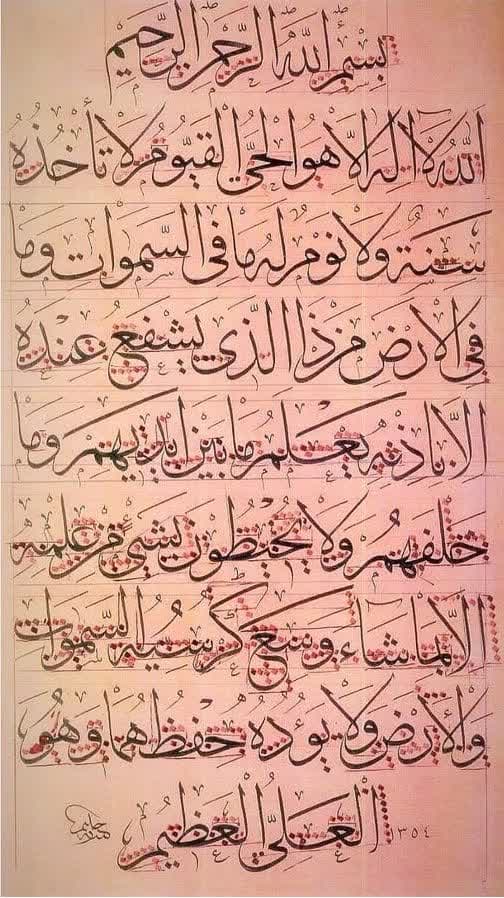 بِسْمِ اللّٰهِ الرَّحْمٰنِ الرَّحِيمِ
اَللّٰهُ لَا اِلٰهَ اِلَّا هُوَ الْحَىُّ الْقَيُّومُ لَا تَأْخُذُهُ
سِنَةٌ وَلَا نَوْمٌ لَهُ مَا فِى السَّمٰوَاتِ وَمَا
فِى الْاَرْضِ مَنْ ذَا الَّذِى يَشْفَعُ عِنْدَهُ
اِلَّا بِاِذْنِهِ يَعْلَمُ مَا بَيْنَ اَيْدِيهِمْ وَمَا
خَلْفَهُمْ وَلَا يُحِيطُونَ بِشَيْءٍ مِنْ عِلْمِهِ
اِلَّا بِمَا شَاءَ وَسِعَ كُرْسِيُّهُ السَّمٰوَاتِ
وَالْاَرْضَ وَلَا يَؤُدُهُ حِفْظُهُمَا وَهُوَ
الْعَلِىُّ الْعَظِيمُ
١٣٥٤